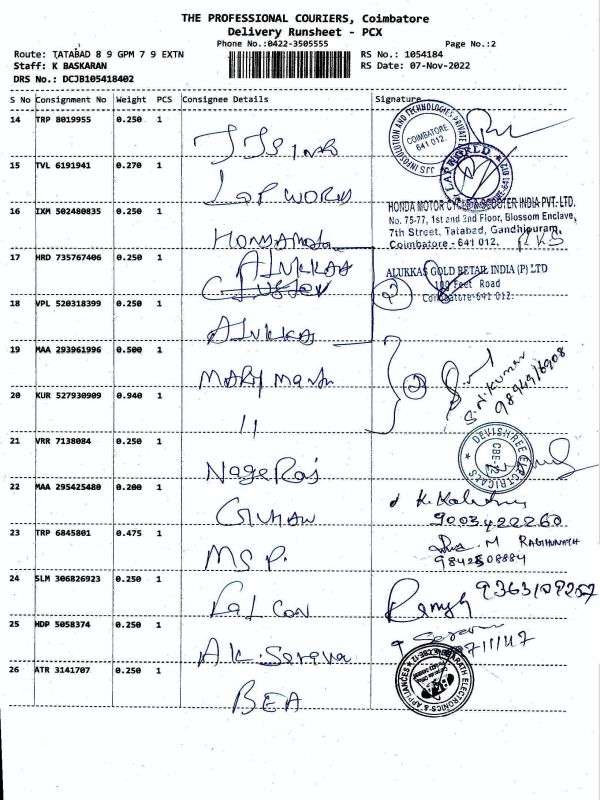 THE PROFESSIONAL COURIERS, Coimbatore
Delivery Runsheet - PCX
Phone No.:0422-3505555
Page No.:2
Route: TATABAD 8 9 GPM 7 9 EXTN
RS No.: 1054184
Staff: K BASKARAN
RS Date: 07-Nov-2022
DRS No.: DCJB105418402
S No Consignment No Weight PCS Consignee Details Signature
14 TRP 8019955 0.250 1
COIMBATORE
641 012.
15 TVL 6191941 0.270 1
LAP WORLD
LAPWORLD
16 IXM 502480835 0.250 1
HONDA MOTOR CYCLE & SCOOTER INDIA PVT. LTD.
No. 75-77, 1st and 2nd Floor, Blossom Enclave,
7th Street, Tatabad, Gandhipuram,
Coimbatore - 641 012.
17 HRD 735767406 0.250 1
ALUKKAS
ALUKKAS GOLD RETAIL INDIA (P) LTD
100 Feet Road
Coimbatore-641 012.
2
18 VPL 520318399 0.250 1
ALUKKAS
19 MAA 293961996 0.500 1
MARY
2
S.N.Kumar
20 KUR 527930909 0.940 1
11
21 VRR 7138084 0.250 1
NageRaj
DEVISHREE ELECTRICALS
CBE-12
22 MAA 295425480 0.200 1
9003422260
23 TRP 6845801 0.475 1
MSP.
M RAGHUNATH
9842508884
24 SLM 306826923 0.250 1
Fal Con
Ramesh
25 HDP 5058374 0.250 1
A.K.
26 ATR 3141707 0.250 1
BEA
BHARATH ELECTRONICS & APPLIANCES